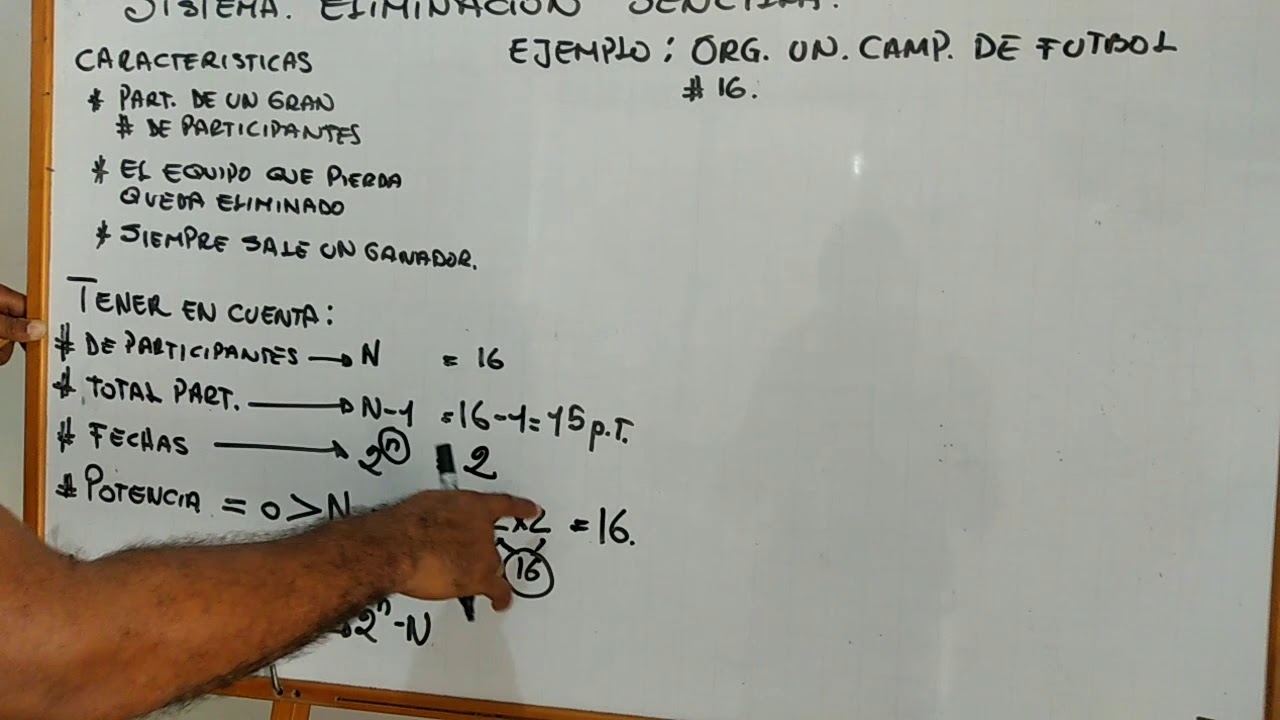 SISTEMA. ELIMINACION SENCILLA.
CARACTERISTICAS
* PART. DE UN GRAN
# DE PARTICIPANTES
* EL EQUIPO QUE PIERDA
QUEDA ELIMINADO
* SIEMPRE SALE UN GANADOR.
TENER EN CUENTA:
# DE PARTICIPANTES → N = 16
# TOTAL PART. → N-1 = 16-1= 15 p.T.
# FECHAS → 2ⁿ 2
# POTENCIA = o > N
x2 = 16.
16
2ⁿ-N
EJEMPLO: ORG. UN. CAMP. DE FUTBOL
# 16.